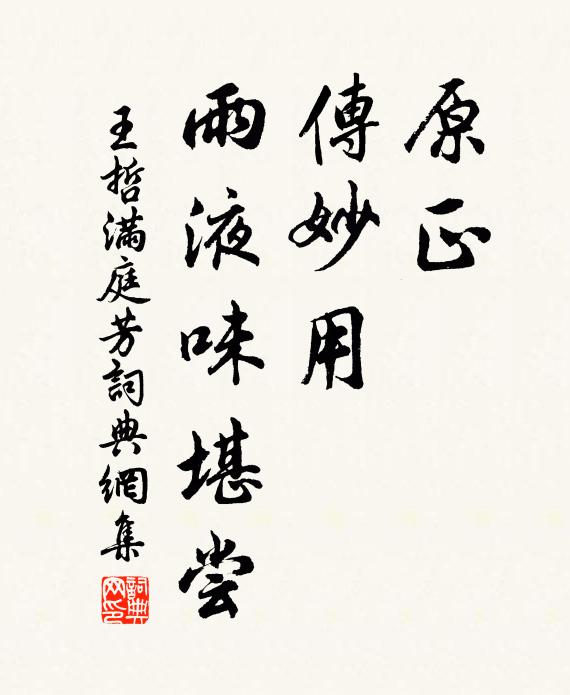 原正
傳妙用
兩液味堪嘗
王哲滿庭芳詞典網集
詞典網印